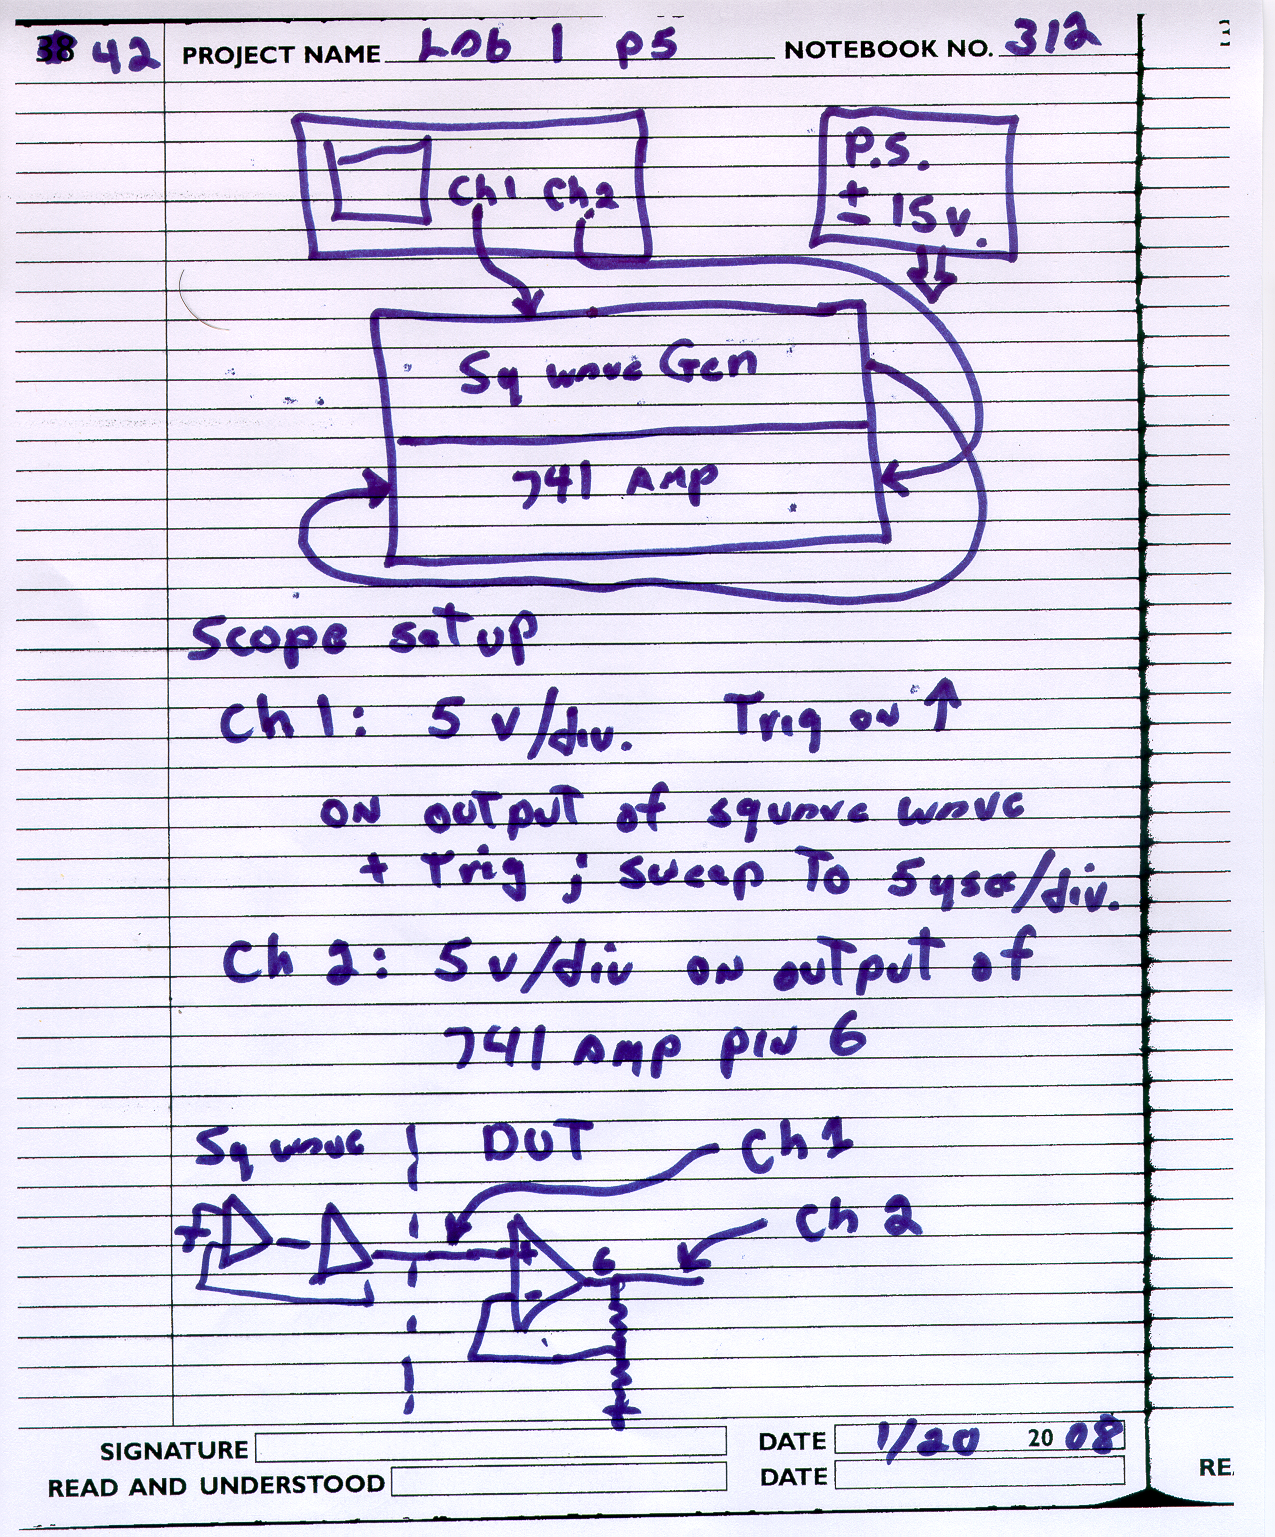 42 PROJECT NAME Lab 1 p5 NOTEBOOK NO. 312
Ch1 Ch2
P.S.
± 15 v.
Sq wave Gen
741 Amp
Scope setup
Ch 1: 5 v/div. Trig on ↑
on output of square wave
+ Trig ; sweep To 5 μsec/div.
Ch 2: 5 v/div on output of
741 Amp pin 6
Sq wave DUT Ch 1
Ch 2
+ 6
-
SIGNATURE DATE 1/20 20 08
READ AND UNDERSTOOD DATE